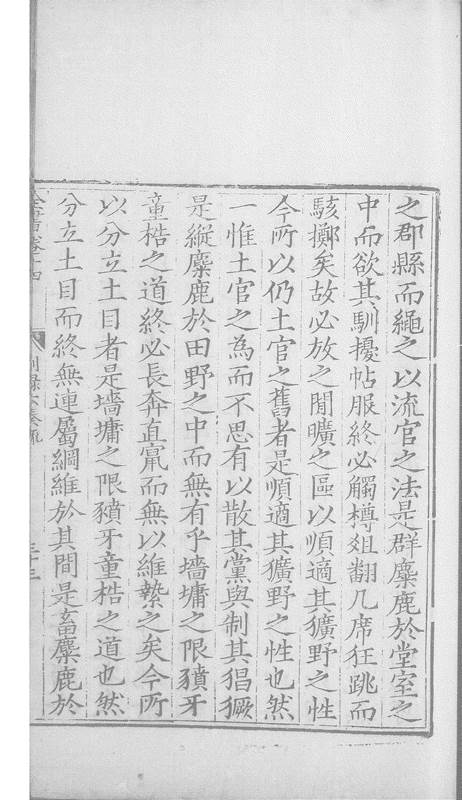 之郡縣而繩之以流官之法是群麋鹿於堂室之
中而欲其馴擾帖服終必觸樽俎翻几席狂跳而
駭擲矣故必放之閒曠之區以順適其獷野之性
今所以仍土官之舊者是順適其獷野之性也然
一惟土官之為而不思有以散其黨與制其猖獗
是縱麋鹿於田野之中而無有乎墻墉之限豶牙
童梏之道終必長奔直竄而無以維縶之矣今所
以分立土目者是墻墉之限豶牙童梏之道也然
分立土目而終無連屬綱維於其間是畜麋鹿於
全書卷十四
別錄六奏疏